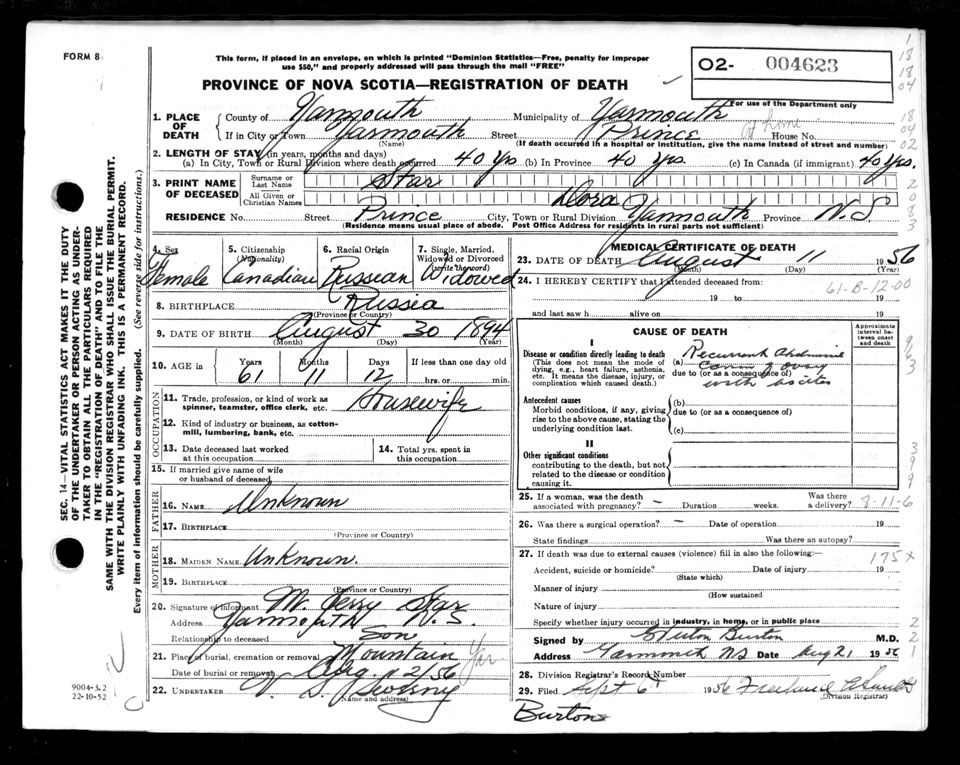 FORM 8
This form, if placed in an envelope, on which is printed "Dominion Statistics—Free, penalty for improper
use $50," and properly addressed will pass through the mail "FREE"
PROVINCE OF NOVA SCOTIA—REGISTRATION OF DEATH
O2- 004623
For use of the Department only
1. PLACE OF DEATH
County of Yarmouth Municipality of Yarmouth
If in City or Town Yarmouth Street Prince House No. at home
(Name) (If death occurred in a hospital or institution, give the name instead of street and number)
2. LENGTH OF STAY (in years, months and days)
(a) In City, Town or Rural Division where death occurred 40 Yrs (b) In Province 40 Yrs. (c) In Canada (if immigrant) 40 Yrs.
3. PRINT NAME OF DECEASED
Surname or Last Name Star
All Given or Christian Names Dora
RESIDENCE No. Street Prince City, Town or Rural Division Yarmouth Province N.S
(Residence means usual place of abode. Post Office Address for residents in rural parts not sufficient)
4. Sex Female
5. Citizenship (Nationality) Canadian
6. Racial Origin Russian
7. Single, Married, Widowed or Divorced (write the word) Widowed
8. BIRTHPLACE Russia
(Province or Country)
9. DATE OF BIRTH August 30 1894
(Month) (Day) (Year)
10. AGE in Years Months Days If less than one day old
61 11 12 hrs. or min.
OCCUPATION
11. Trade, profession, or kind of work as spinner, teamster, office clerk, etc. Housewife
12. Kind of industry or business, as cotton-mill, lumbering, bank, etc.
13. Date deceased last worked at this occupation
14. Total yrs. spent in this occupation
15. If married give name of wife or husband of deceased
FATHER
16. NAME Unknown
17. BIRTHPLACE
(Province or Country)
MOTHER
18. MAIDEN NAME Unknown.
19. BIRTHPLACE
(Province or Country)
20. Signature of informant M. Jerry Star
Address Yarmouth N.S.
Relationship to deceased Son
21. Place of burial, cremation or removal Mountain Yar
Date of burial or removal Aug. 12/56
22. UNDERTAKER V. S. Sweeny
(Name and address)
MEDICAL CERTIFICATE OF DEATH
23. DATE OF DEATH August 11 1956
(Month) (Day) (Year)
24. I HEREBY CERTIFY that I attended deceased from
61-8-12-00
19 to 19
and last saw h alive on 19
CAUSE OF DEATH
Approximate interval between onset and death
I
Disease or condition directly leading to death
(This does not mean the mode of dying, e.g., heart failure, asthenia, etc. It means the disease, injury, or complication which caused death.)
(a) Recurrent Abdominal
due to (or as a consequence of)
with ascites
Antecedent causes
Morbid conditions, if any, giving rise to the above cause, stating the underlying condition last.
(b)
due to (or as a consequence of)
(c)
II
Other significant conditions
contributing to the death, but not related to the disease or condition causing it.
25. If a woman, was the death associated with pregnancy? — Duration weeks. Was there a delivery? 8-11-6
26. Was there a surgical operation? — Date of operation 19
State findings Was there an autopsy?
27. If death was due to external causes (violence) fill in also the following:— 175 x
Accident, suicide or homicide? Date of injury 19
(State which)
Manner of injury
(How sustained
Nature of injury
Specify whether injury occurred in industry, in home, or in public place
Signed by Burton M.D.
Address Yarmouth NS Date Aug 21 1956
28. Division Registrar's Record Number
29. Filed Sept 6 1956
Division Registrar)
Burton
SEC. 14—VITAL STATISTICS ACT MAKES IT THE DUTY
OF THE UNDERTAKER OR PERSON ACTING AS UNDER-
TAKER TO OBTAIN ALL THE PARTICULARS REQUIRED
IN THE "REGISTRATION OF DEATH" AND TO FILE THE
SAME WITH THE DIVISION REGISTRAR WHO SHALL ISSUE THE BURIAL PERMIT.
WRITE PLAINLY WITH UNFADING INK. THIS IS A PERMANENT RECORD.
Every item of information should be carefully supplied. (See reverse side for instructions.)
9004-3.2
22-10-52